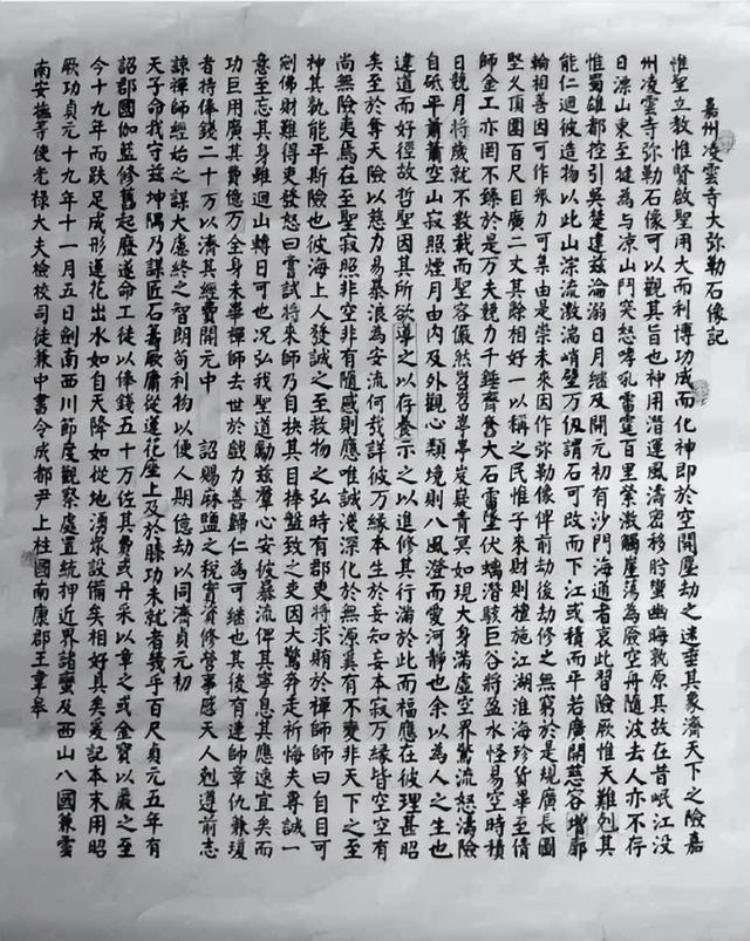 嘉州凌雲寺大弥勒石像記
惟聖立教惟賢啟聖用大而利博功成而化神即於空開塵劫之迷垂其象濟天下之險嘉
州凌雲寺弥勒石像可以觀其旨也神用潛運風濤密移肸蠁幽晦孰原其故在昔岷江没
日漂山東至犍為与凉山鬥突怒哮吼雷霆百里縈激觸崖蕩為廞空舟随波去人亦不存
惟蜀雄都控引吳楚建兹淪溺日月継及開元初有沙門海通者哀此習險厥惟天難剋其
能仁迴彼造物以此山淙流激湍峭壁万仞謂石可改而下江或積而平若廣開慈容增廓
輪相善因可作衆力可集由是崇未來因作弥勒像俾前劫後劫修之無窮於是規廣長圖
堅久頂圍百尺目廣二丈其餘相好一以稱之民惟子來財則檀施江湖淮海珍貨畢至債
師金工亦罔不臻於是万夫競力千錘齊奮大石雷墜伏螭潛駭巨谷將盈水怪易空時積
日競月將歲就不數載而聖容儼然岧岧亭亭岌嶷青冥如現大身滿虛空界驚流怒濤險
自砥平蕭蕭空山寂照煙月由内及外觀心類境則八風澄而愛河静也余以為人之生也
違道而好徑故哲聖因其所欲導之以存養示之以進修其行滿於此而福應在彼理甚昭
矣至於奪天險以慈力易暴浪為安流何哉詳彼万緣本生於妄知妄本寂万緣皆空空有
尚無險夷焉在至聖寂照非空非有隨感則應唯誠淺深化於無源奚有不變非天下之至
神其孰能平斯險也彼海上人發誠之至救物之弘時有郡吏將求賄於禪師師曰自目可
剜佛財難得吏發怒曰嘗試將來師乃自抉其目捧盤致之吏因大驚奔走祈悔夫專誠一
意至忘其身雖迴山轉日可也况弘我聖道勵兹羣心安彼暴流俾其寧息其應速宜矣而
功巨用廣其費億万全身未畢禪師去世於戲力善歸仁為可継也其後有連帥章仇兼瓊
者持俸錢二十万以濟其經費開元中 詔賜麻鹽之稅實資修營事感天人剋遵前志
諒禪師經始之謀大慮終之智朗苟利物以便人期億劫以同濟貞元初
天子命我守兹坤隅乃謀匠石籌厥庸從蓮花座上及於膝功未就者幾乎百尺貞元五年有
詔郡國伽藍修舊起廢遂命工徒以俸錢五十万佐其費或丹采以章之或金寶以嚴之至
今十九年而趺足成形蓮花出水如自天降如從地湧衆設備矣相好具矣爰記本末用昭
厥功貞元十九年十一月五日劍南西川節度觀察處置統押近界諸蠻及西山八國兼雲
南安撫等使光禄大夫檢校司徒兼中書令成都尹上柱國南康郡王韋皋